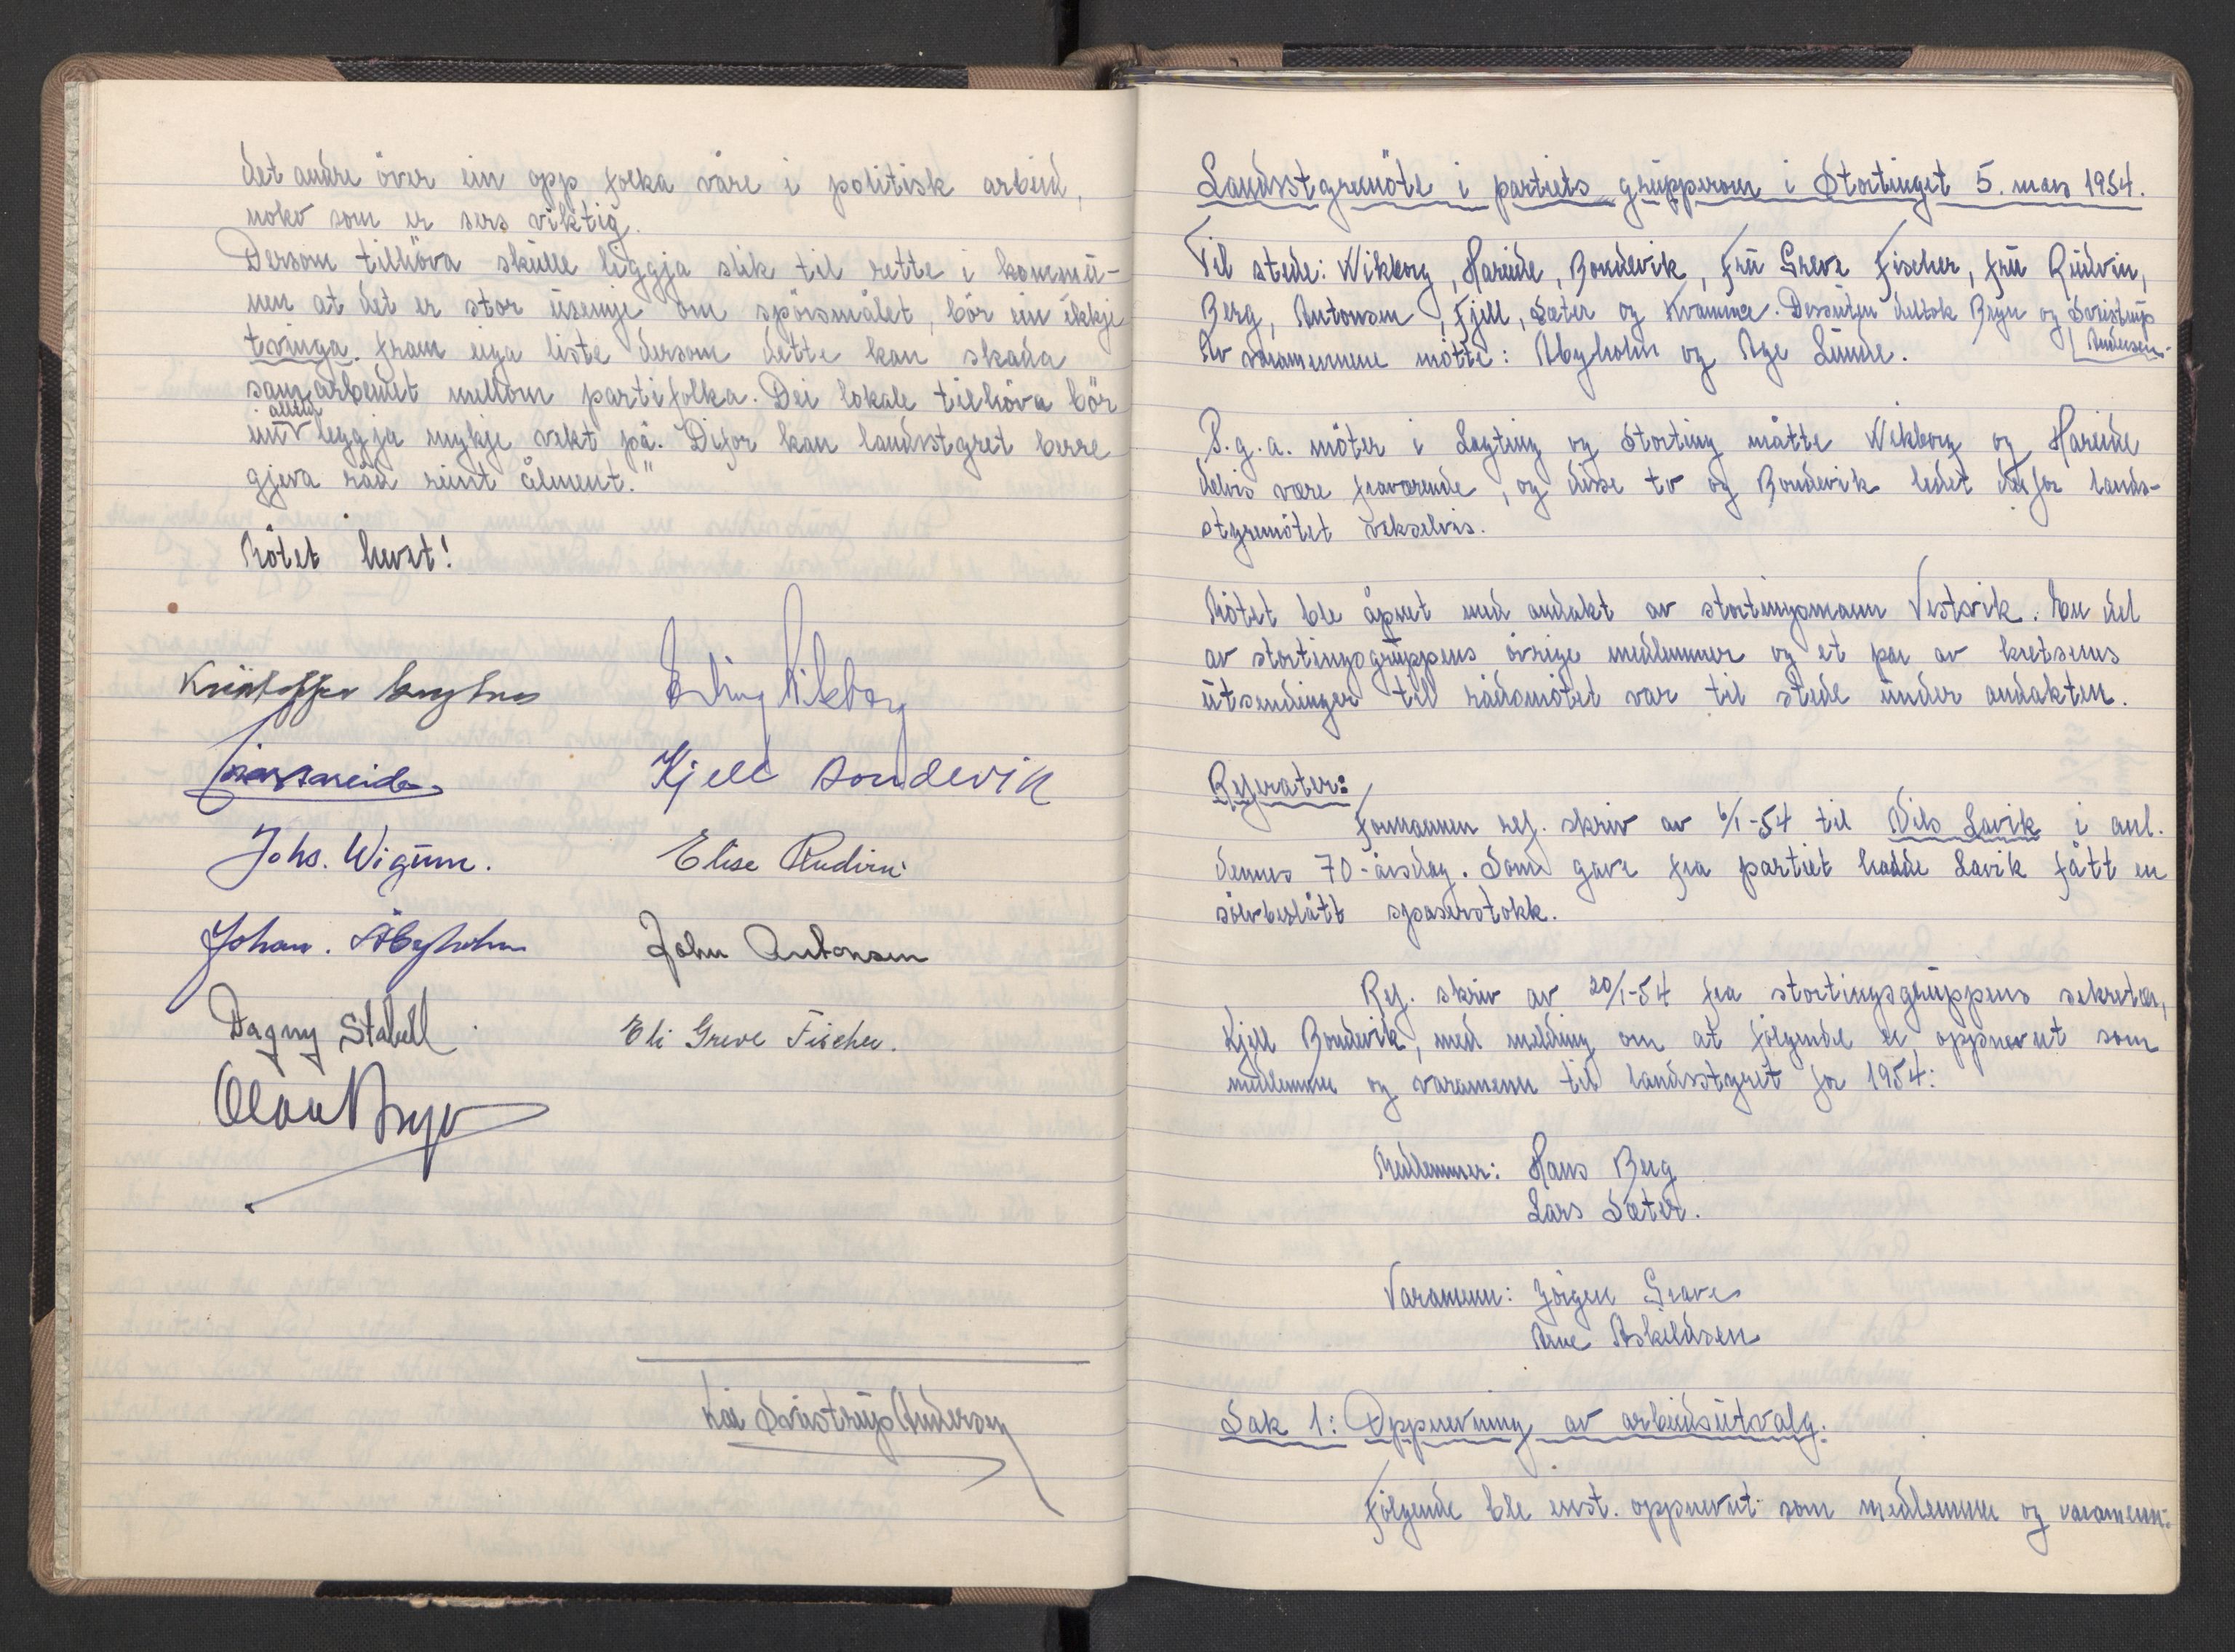 det andre över ein opp folka våre i politisk arbeid,
noko som er sers viktig.
Dersom tilhöva skulle liggja slik til rette i kommu-
nen at det er stor usemje om spörsmålet, bör ein ikkje
tvinga fram eiga liste dersom dette kan skada
samarbeidet millom partifolka. Dei lokale tilhöva bör
alltid
ein leggja mykje vekt på. Difor kan landsstyret berre
gjeva råd reint ålment."
Mötet hevet!
Erling Wikborg
Kjell Bondevik
Johs. Wigum.
Elise Rudvin
Johan. Åbyholm
John Antonsen
Dagny Stabell
Eli Greve Fischer.
Olav Bryn
Kai Svistrup Andersen
Landsstyremöte i partiets grupperom i Stortinget 5. mars 1954.
Til stede: Wikborg, Hareide, Bondevik, Fru Greve Fischer, fru Rudvin,
Berg, Antonsen, Fjell, Sæter og Kvamme. Dessuten deltok Bryn og Svistrup
Andersen.
Av varamennene mötte: Åbyholm og Åge Lunde.
P.g.a. möter i Lagting og Storting måtte Wikborg og Hareide
delvis være fraværende, og disse to og Bondevik ledet derfor lands-
styremötet vekselvis.
Mötet ble åpnet med andakt av stortingsmann Vestvik. En del
av stortingsgruppens övrige medlemmer og et par av kretsenes
utsendinger til rådsmötet var til stede under andakten.
Referater:
Formannen ref. skriv av 6/1-54 til Nils Lavik i anl.
dennes 70-årsdag. Som gave fra partiet hadde Lavik fått en
sölvbeslått spaserstokk.
Ref. skriv av 20/1-54 fra stortingsgruppens sekretær,
Kjell Bondevik, med melding om at fölgende er oppnevnt som
medlemmer og varamenn til landsstyret for 1954:
Medlemmer: Hans Berg
Lars Sæter.
Varamenn: Jörgen Grave
Arne Askildsen
Sak 1: Oppnevning av arbeidsutvalg.
Fölgende ble enst. oppnevnt som medlemmer og varamenn: